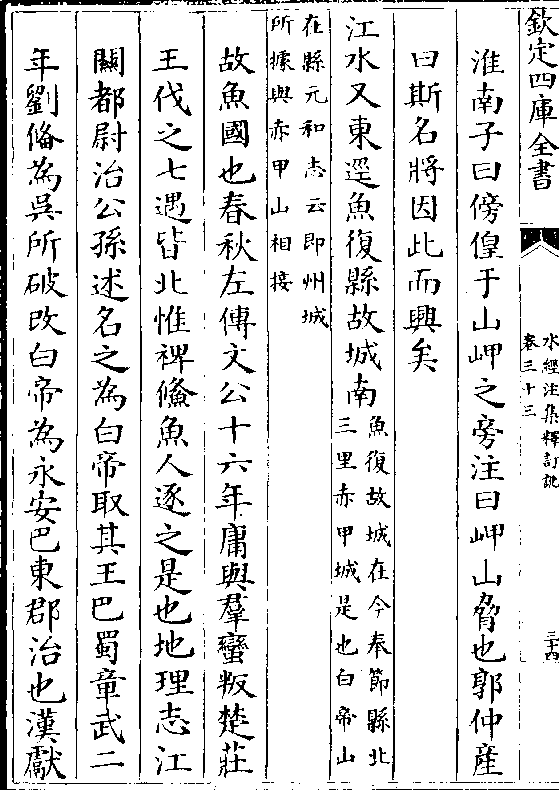 欽定四庫全書
水經注集釋訂訛
卷三十三
三十四
淮南子曰傍偟于山岬之旁注曰岬山脅也郭仲産
曰斯名將因此而興矣
江水又東逕魚復縣故城南
魚復故城在今奉節縣北
三里赤甲城是也白帝山
在縣元和志云即州城
所據與赤甲山相接
故魚國也春秋左傳文公十六年庸與羣蠻叛楚莊
王伐之七遇皆北惟裨鯈魚人逐之是也地理志江
關都尉治公孫述名之為白帝取其王巴蜀章武二
年劉偹為吳所破改白帝為永安巴東郡治也漢獻